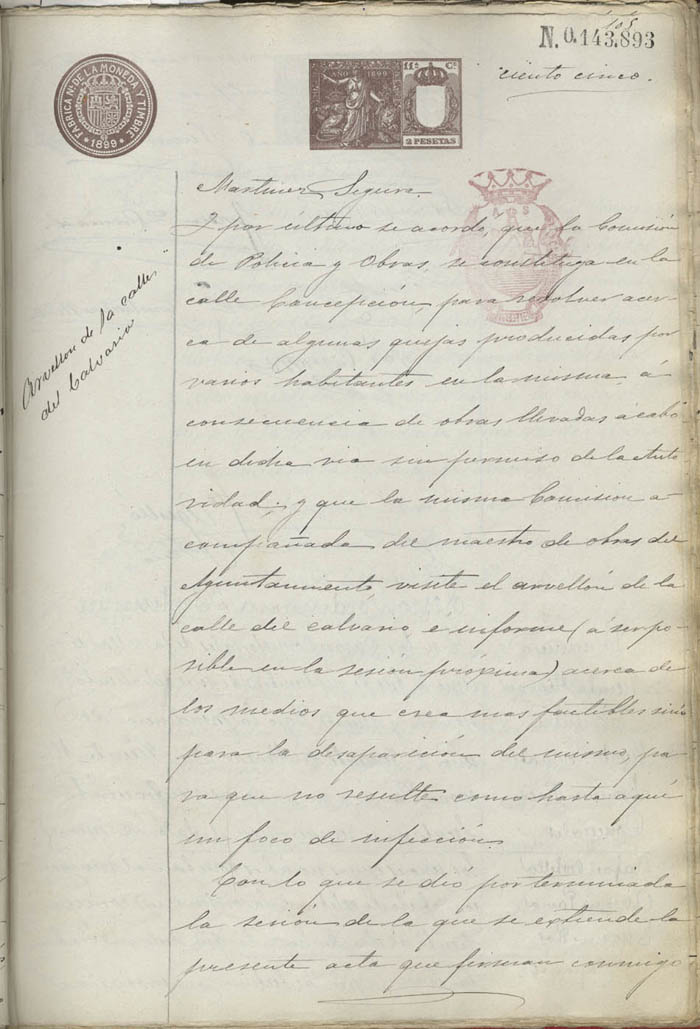 105
N. 0.143.893
ciento cinco.
FABRICA NL. DE LA MONEDA Y TIMBRE
1899
AÑO 1899
11ª Cª
2 PESETAS
Martinez Segura.
Y por último se acordó, que la Comisión
de Policia y Obras, se constituya en la
calle Concepción, para resolver acer-
ca de algunas quejas producidas por
varios habitantes en la misma, á
consecuencia de obras llevadas á cabo
en dicha via sin permiso de la Auto
ridad; y que la misma Comision a-
compañada del maestro de obras del
Ayuntamiento visite el arvellón de la
calle del calvario é informe (á ser po-
sible en la sesion próxima) acerca de
los medios que crea mas factibles sinó
para la desaparición del mismo, pa-
ra que no resulte como hasta aquí
un foco de infección.
Con lo que se dio por terminada
la sesión de la que se extiende la
presente acta que firman conmigo
Arvellon de la calle
del Calvario